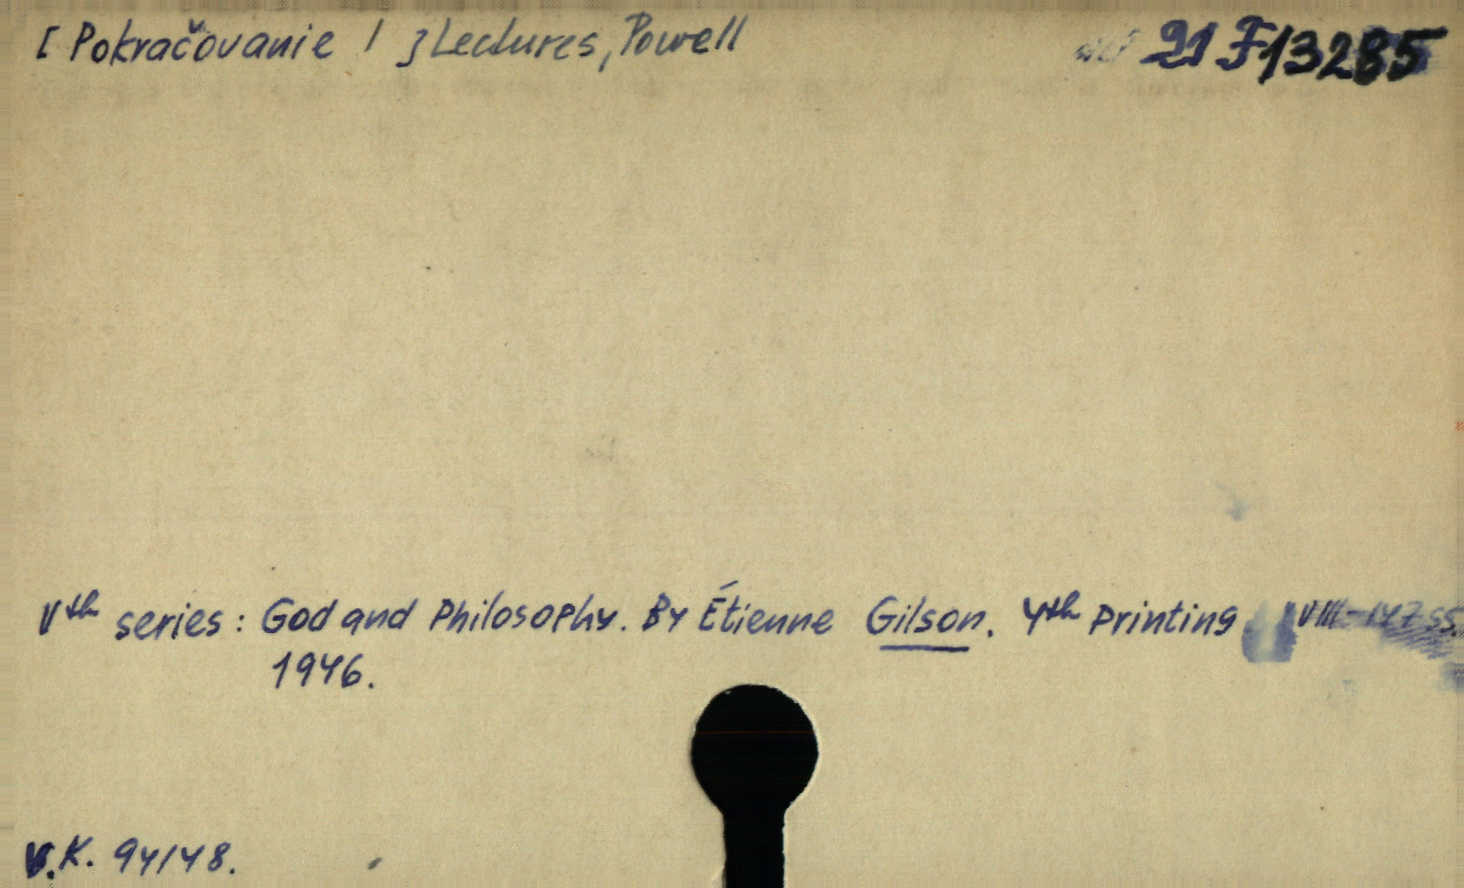 [ Pokračovanie / ] Lectures, Powell 21 F 13285
Vth series: God and Philosophy. By Étienne Gilson. 4th Printing VIII-147 ss.
1946.
V.K. 94/48.